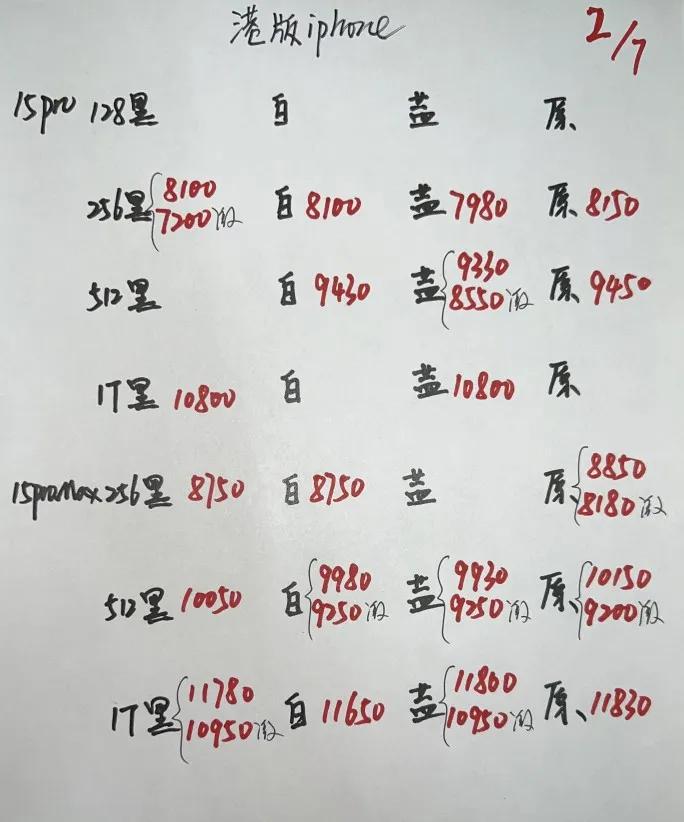 港版iphone 2/7
15pro 128黑 白 蓝 原
256黑 8100 7200激 白 8100 蓝 7980 原 8150
512黑 白 9430 蓝 9330 8550激 原 9450
1T黑 10800 白 蓝 10800 原
15promax 256黑 8750 白 8750 蓝 原 8850 8180激
512黑 10050 白 9980 9250激 蓝 9930 9250激 原 10150 9200激
1T黑 11780 10950激 白 11650 蓝 11800 10950激 原 11830